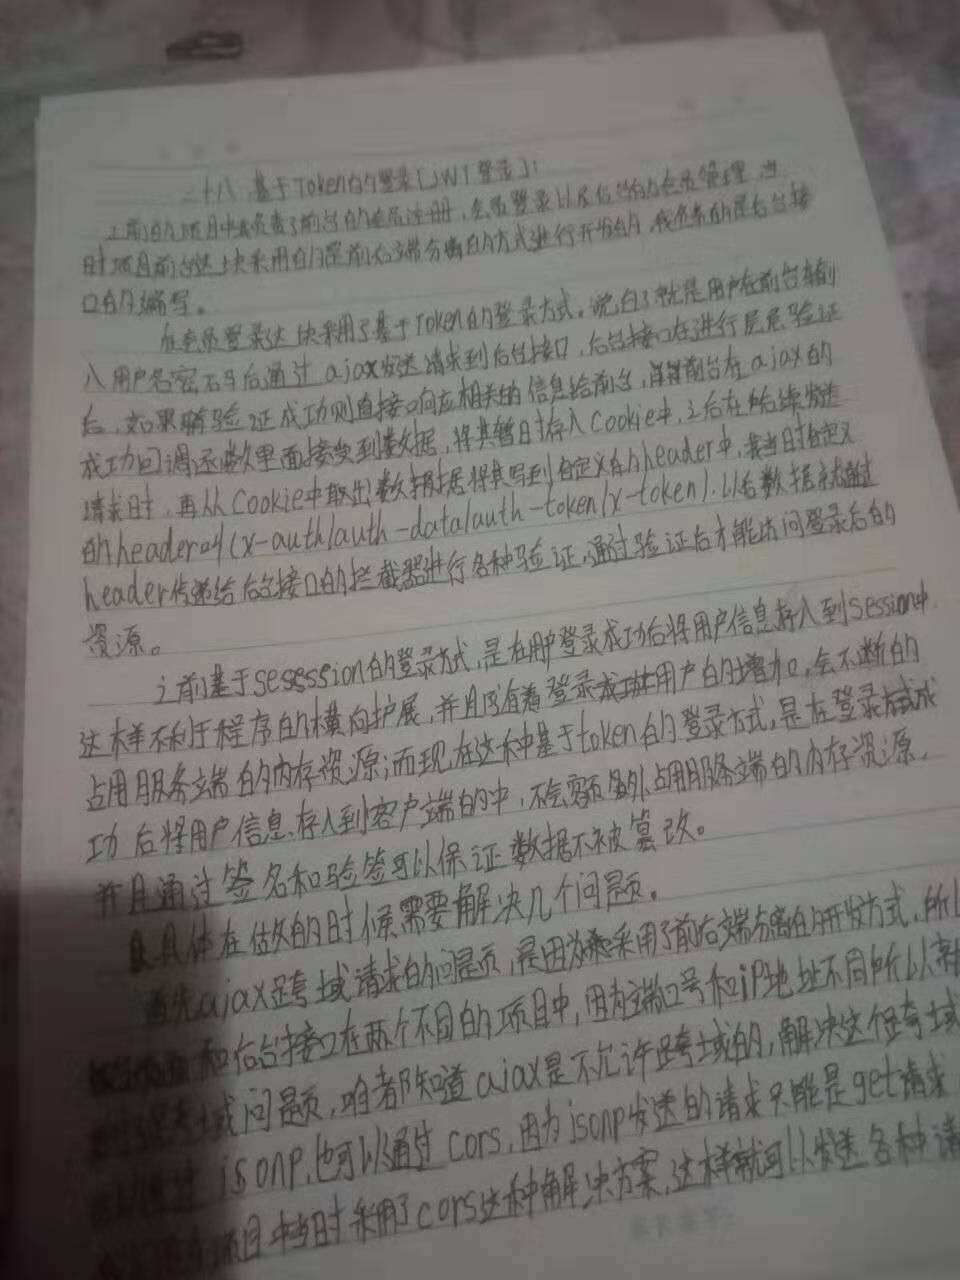 二十八 基于Token的登录[JWT登录]:
之前的项目中我负责了前台的会员注册,会员登录以及后台的会员管理,当
时项目前台这块采用的是前后端分离的方式进行开发的,我负责的是后台接
口的编写。
在会员登录这块采用了基于Token的登录方式,说白了就是用户在前台输
入用户名密码后通过ajax发送请求到后台接口,后台接口在进行层层验证
后,如果验证成功则直接响应相关的信息给前台,前台在ajax的
成功回调函数里面接受到数据,将其暂时存入Cookie中,之后在后续发送
请求时,再从Cookie中取出数据将其写到自定义的header中,我当时自定义
的header叫(x-auth/auth-data/auth-token/x-token).以后数据就通过
header传递给后台接口的拦截器进行各种验证,通过验证后才能访问登录后的
资源。
之前基于sesession的登录方式,是在用户登录成功后将用户信息存入到session中,
这样不利于程序的横向扩展,并且随着登录用户的增加,会不断的
占用服务端的内存资源;而现在这种基于token的登录方式,是在登录成
功后将用户信息存入到客户端的中,不会额外占用服务端的内存资源,
并且通过签名和验签可以保证数据不被篡改。
具体在做的时候需要解决几个问题。
首先ajax跨域请求的问题,是因为采用了前后端分离的开发方式,所以
和后台接口在两个不同的项目中,因为端口号和ip地址不同所以就
域问题,咱都知道ajax是不允许跨域的,解决这个跨域
jsonp,也可以通过cors,因为jsonp发送的请求只能是get请求
项目中当时采用了cors这种解决方案,这样就可以发送各种请